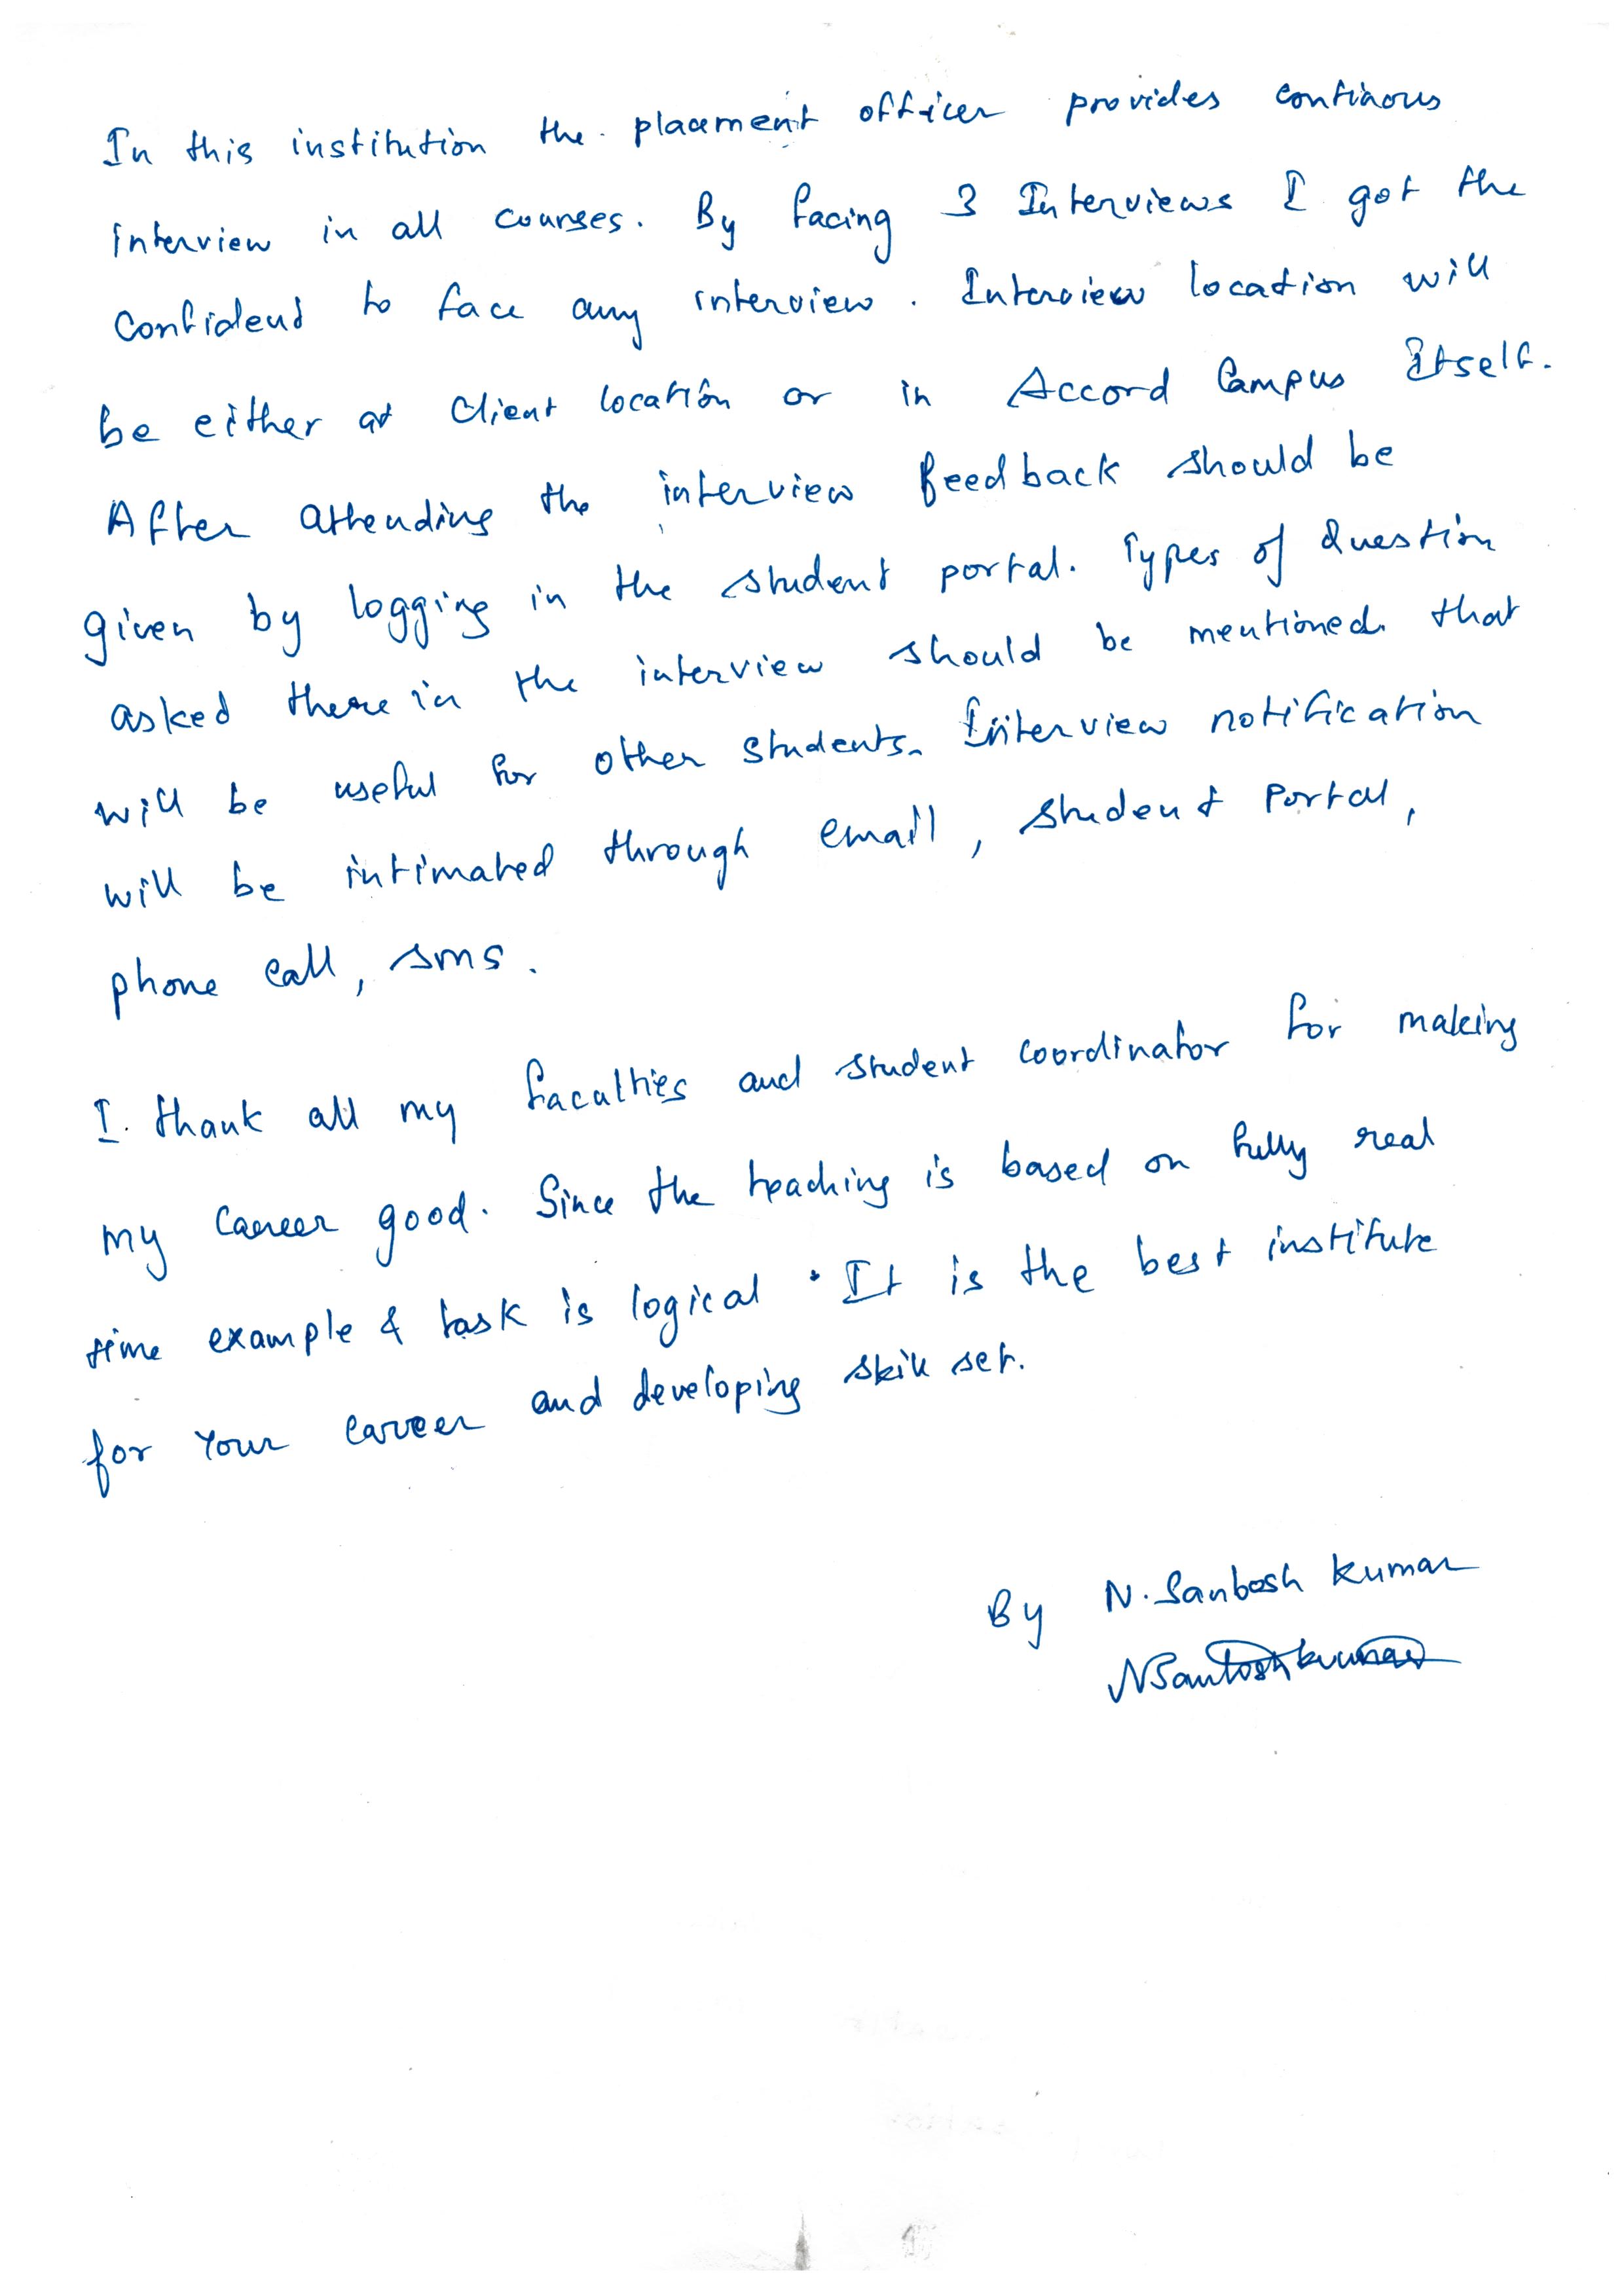 In this institution the placement officer provides continous
interview in all courses. By facing 3 Interviews I got the
confidend to face any interview. Interview location will
be either at Client location or in Accord Campus Itself.
After attending the interview feedback should be
given by logging in the student portal. Types of Question
asked there in the interview should be mentioned. that
will be useful for other students. Interview notification
will be intimated through email, student Portal,
phone call, sms.
I thank all my faculties and student coordinator for making
my career good. Since the teaching is based on fully real
time example & task is logical. It is the best institute
for Your career and developing skill set.
By N. Santosh Kumar
NSantoshkumar